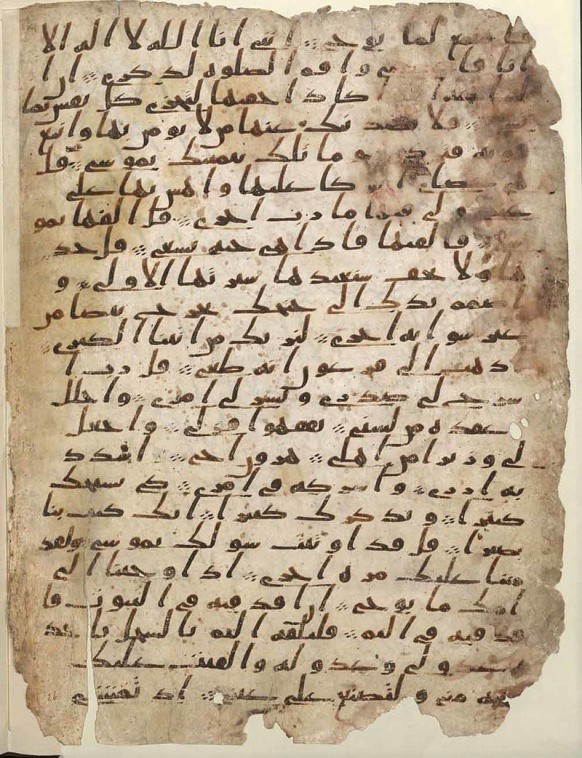 فاستمع لما يوحى انني انا الله لا اله الا
انا فاعبدني واقم الصلوه لذكري ان ا
لساعه اكاد اخفيها لتجزى كل نفس بما
تسعى فلا يصدنك عنها من لا يومن بها واتبع
هويه فتردى وما تلك بيمينك يموسى قل
هي عصاي اتوكا عليها واهش بها على
غنمي ولي فيها مارب اخرى قل القها يمو
سى فالقيها فاذا هي حيه تسعى قل خذ
ها ولا تخف سنعيدها سيرتها الاولى و
اضمم يدك الى جنحك تخرج بيضا من
غير سو ايه اخرى لنريك من ايتنا الكبرى
اذهب الى فرعون انه طغى قل رب ا
شرح لي صدري ويسر لي امري واحلل
عقده من لسني يفقهوا قولي واجعل
لي وزيرا من اهلي هرون اخي اشدد
به ازري واشركه في امري كي نسبحك
كثيرا ونذكرك كثيرا انك كنت بنا
بصيرا قل قد اوتيت سولك يموسى ولقد
مننا عليك مره اخرى اذ اوحينا الى
امك ما يوحى ان اقذفيه في التبوت فا
قذفيه في اليم فليلقه اليم بالسحل ياخذ
ه عدو لي وعدو له والقيت عليك
محبه مني ولتصنع على عيني اذ تمشي